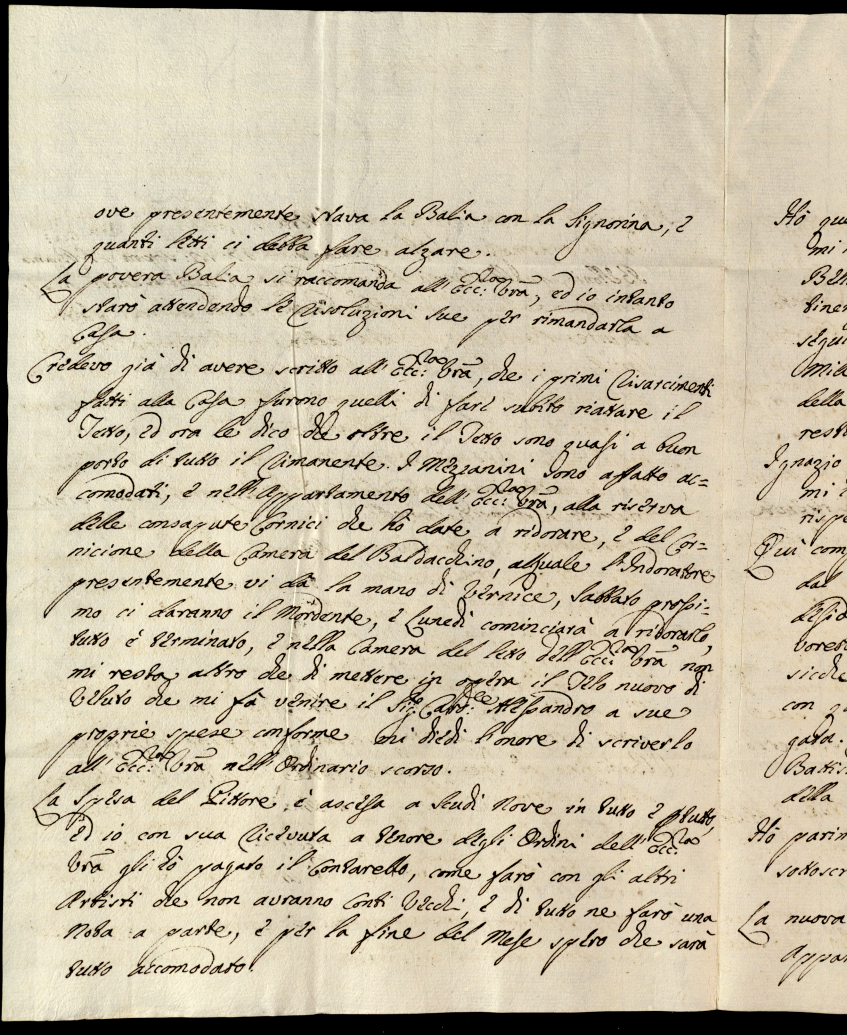 ove presentemente stava la Balia con la Signorina, e
quanti letti ci debba fare alzare.
La povera Balia si raccomanda all'Ecc:za Vrã, ed io intanto
starò attendendo le Risoluzioni sue per rimandarla a
Casa.
Credevo già di avere scritto all'Ecc:za Vrã, che i primi Risarcimenti
fatti alla Casa furono quelli di fare subito riattare il
Tetto, ed ora le dico che oltre il Tetto sono quasi a buon
porto di tutto il Rimanente. I Mezzanini sono affatto ac=
comodati, e nell'Appartamento dell'Ecc:za Vrã, alla riserva
delle consapute Cornici che hò date a ridorare, e del Cor=
nicione della Camera del Baldacchino, al quale l'Indoratore
presentemente vi dà la mano di Vernice, Sabbato prossi=
mo ci daranno il Mordente, e Lunedì cominciarà a ridorarlo,
tutto è terminato, e nella Camera del letto dell'Ecc:za Vrã non
mi resta altro che di mettere in opera il Telo nuovo di
Veluto che mi fà venire il Sig: Alessandro a sue
proprie spese conforme mi diedi l'onore di scriverlo
all'Ecc:za Vrã nell'Ordinario scorso.
La Spesa del Pittore, è ascesa a Scudi Nove in tutto e p tutto,
ed io con sua Ricevuta a tenore degli Ordini dell'Ecc:za
Vrã gli hò pagato il Contarello, come farò con gli altri
Artisti che non avranno Conti Vecchi, e di tutto ne farò una
Nota a parte, e per la fine del Mese spero che sarà
tutto accomodato.
Hò
mi
della
Ignazio
mi
Quì
dal
con
della
Hò
La nuova